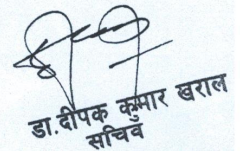 डा.दीपक कुमार खराल
सचिव